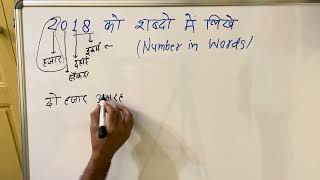 2018 को शब्दो मे लिखे
(Number in Words)
हजार इकाई
दहाई
सैकड़ा
दो हजार अठारह